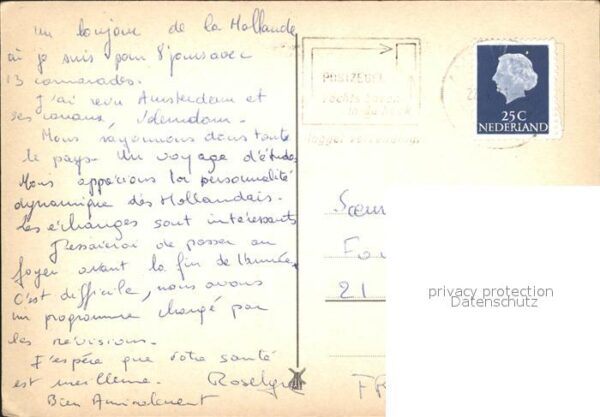 un bonjour de la Hollande
où je suis pour 8 jours avec
13 camarades.
J'ai revu Amsterdam et
ses canaux, Volendam.
Nous rayonnons dans toute
le pays. Un voyage d'études
Nous apprécions la personnalité
dynamique des Hollandais.
Les échanges sont intéressants
J'essaierai de passer au
foyer avant la fin de l'année.
C'est difficile, nous avons
un programme chargé par
les révisions.
J'espère que votre santé
est meilleure. Roselyne
Bien Amicalement
POSTZEGEL
rechts boven
in de hoek
25C
NEDERLAND
Sœur
21
FR
privacy protection
Datenschutz